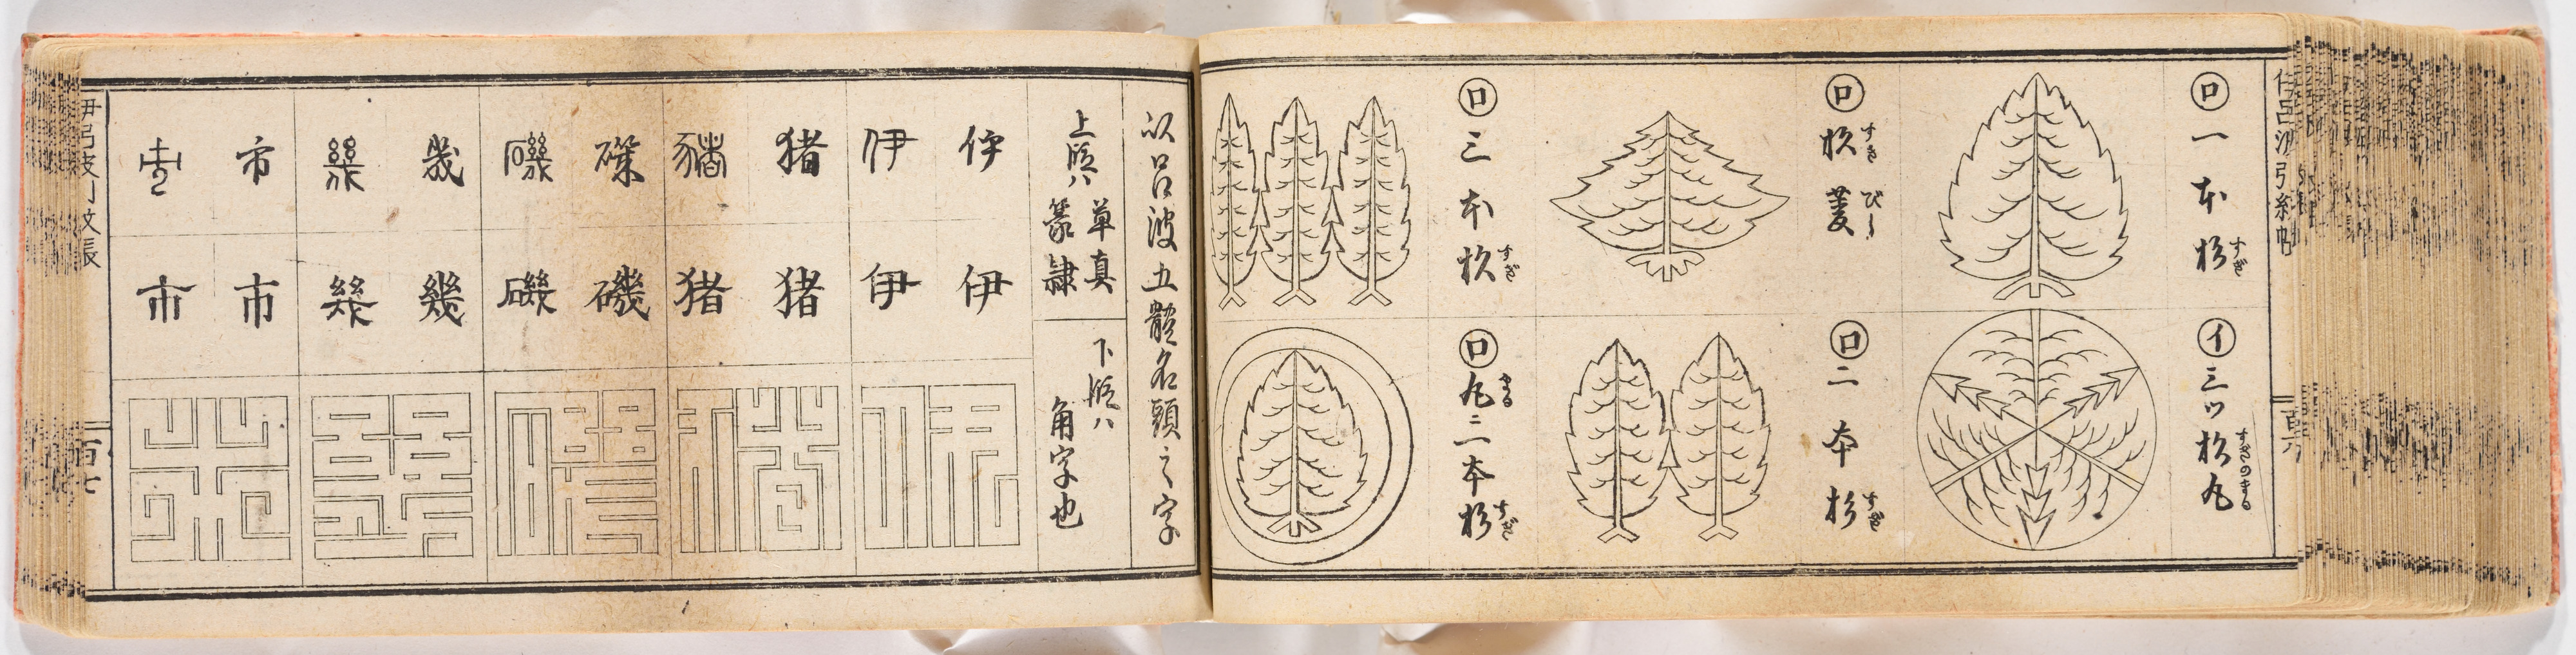 伊呂波引紋帖
百六
ロ 一本杉 すぎ
イ 三ツ杉丸 すぎのまる
ロ 杉菱 すぎ びし
ロ 二本杉 すぎ
ロ 三本杉 すぎ
ロ 丸ニ一本杉 まる すぎ
以呂波五體名頭之字
上段ハ 草真
篆隷
下段ハ
角字也
伊 伊
伊 伊
猪 猪
猪 猪
磯 磯
磯 磯
幾 幾
幾 幾
市 市
市 市
伊 猪 磯 幾 市
伊呂波引紋帳
百七